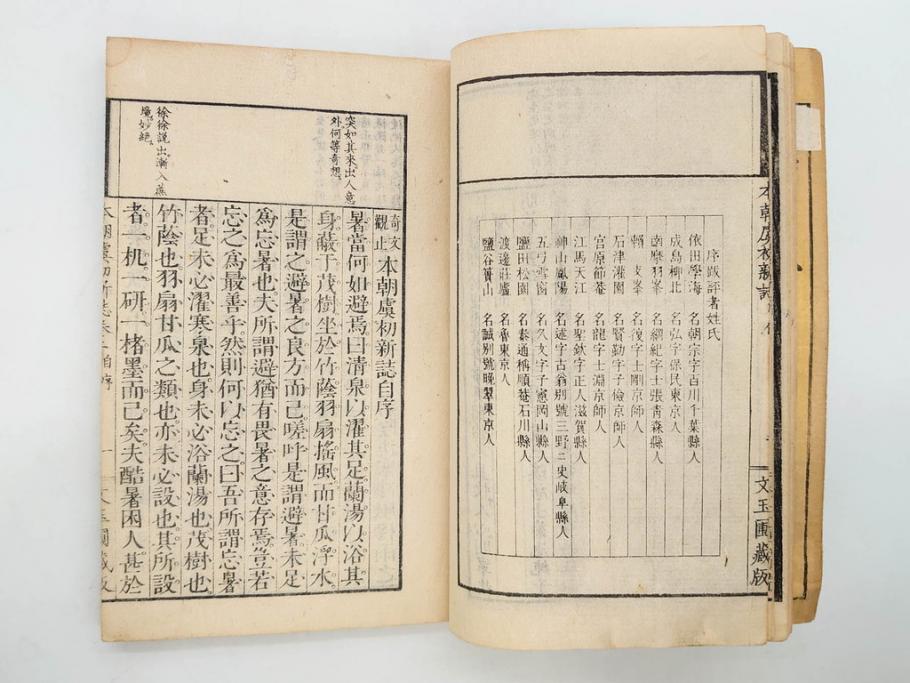 本朝虞初新誌
文玉圃藏版
序跋評者姓氏
依田學海 名朝宗字百川千葉縣人
成島柳北 名弘字保民東京人
南摩羽峯 名綱紀字士張青森縣人
賴支峯 名復字士剛京師人
石津灌園 名賢勤字子儉京師人
宮原節菴 名龍字士淵京師人
江馬天江 名聖欽字正人滋賀縣人
神山鳳陽 名述字古翁別號三野ニ史岐阜縣人
五弓雪窗 名久文字子憲岡山縣人
渡邊莊廬 名魯東京人
鹽谷簣山 名誠別號晚翠東京人
突如其來出人意
外何等奇想
徐徐說出漸入蔗
境妙絕
奇文觀止 本朝虞初新誌自序
暑當何如避焉曰清泉以濯其足蘭湯以浴其
身蔽于茂樹坐於竹蔭羽扇搖風而甘瓜浮水
是謂之避暑之良方而已嗟呼是謂避暑未足
爲忘暑也夫所謂避猶有畏暑之意存焉豈若
忘之爲最善乎然則何以忘之曰吾所謂忘暑
者足未必濯寒泉也身未必浴蘭湯也茂樹也
竹蔭也羽扇甘瓜之類也亦未必設也其所設
者一机一研一楮墨而已矣夫酷暑困人甚於